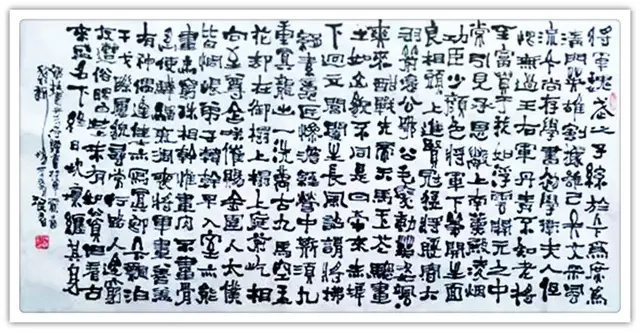 將軍魏武之子孫於今為庶為
清門英雄割據雖已矣文采風
流今尚存學書初學衛夫人但
恨無過王右軍丹青不知老將
至富貴於我如浮雲開元之中
常引見承恩數上南薰殿凌煙
功臣少顏色將軍下筆開生面
良相頭上進賢冠猛將腰間大
羽箭褒公鄂公毛髮動英姿颯
爽來酣戰先帝天馬玉花驄畫
工如山貌不同是日牽來赤墀
下迴立閶闔生長風詔謂將軍拂
絹素意匠慘澹經營中斯須九
重真龍出一洗萬古凡馬空玉
花却在御榻上榻上庭前屹相
向至尊含笑催賜金圉人太僕
皆惆悵弟子韓幹早入室亦能
畫馬窮殊相幹惟畫肉不畫骨
忍使驊騮氣凋喪將軍畫善蓋
有神偶逢佳士亦寫真即今漂泊
干戈際屢貌尋常行路人途窮
反遭俗眼白世上未有如公貧但看古
來盛名下終日坎壈纏其身